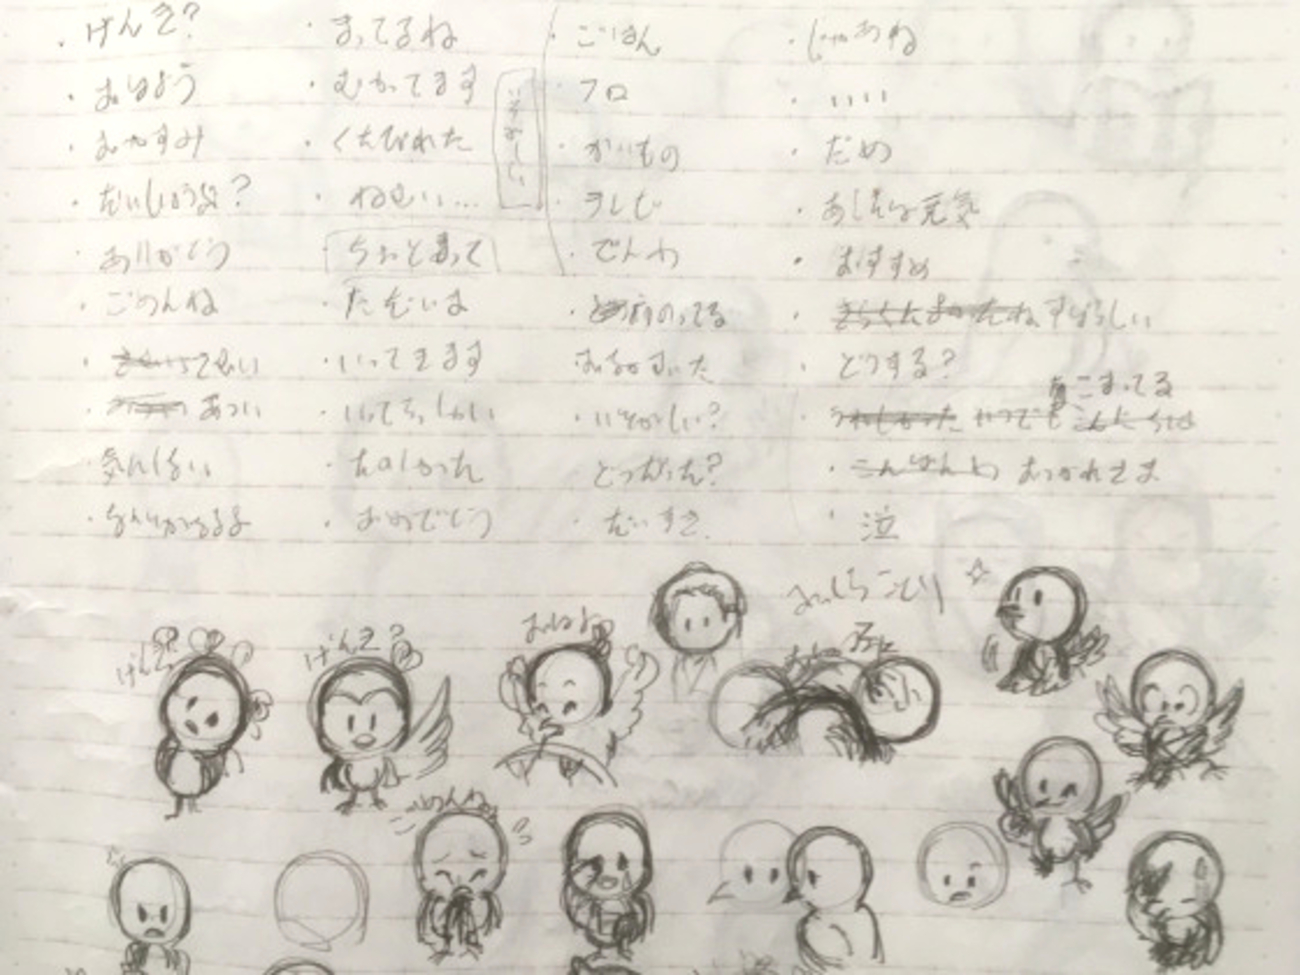 ・げんき?
・おはよう
・おやすみ
・だいじょうぶ?
・ありがとう
・ごめんね
さむい
あつい
・気にしない
・まってるね
・むかってます
・くたびれた
・ねむい…
・ちょっとまって
・ただいま
・いってきます
・いってらっしゃい
・たのしかった
・おめでとう
いそがしい
・ごはん
・フロ
・かいもの
・そうじ
・でんわ
のってる
おなかすいた
・いそがしい?
・どうだった?
・だいすき
・じゃあね
・いい
・だめ
・あしたは元気
・おすすめ
すばらしい
・どうする?
こまってる
・こんばんわ おつかれさま
・泣
ことり
げんき?
げんき?
ごめんね